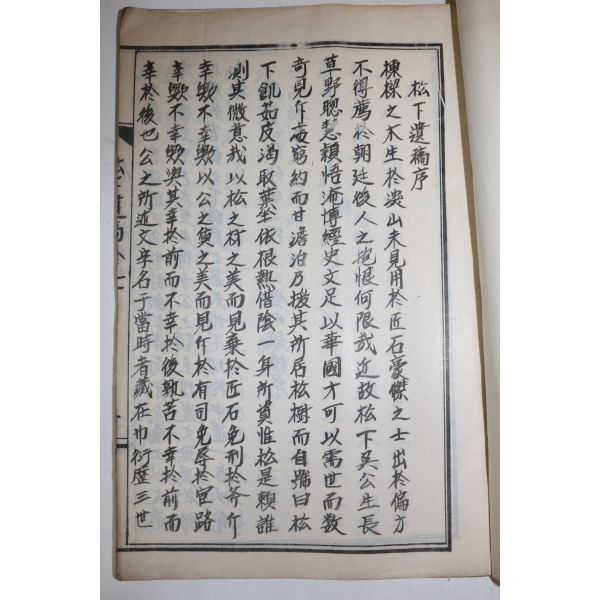 松下遺稿序
棟樑之木生於深山未見用於匠石豪傑之士出於偏方
不得薦於朝廷後人之抱恨何限哉近故松下吳公生長
草野聰慧穎悟淹博經史文足以華國才可以需世而数
奇見斥處窮約而甘澹泊乃援其所居松樹而自號曰松
下飢茹皮渴取葉坐依根熱借陰一年所資惟松是賴誰
測其微意哉以松之材之美而見棄於匠石免刑於斧斤
幸歟不幸歟以公之貨之美而見斥於有司免辱於官路
幸歟不幸歟與其幸於前而不幸於後孰若不幸於前而
幸於後也公之所述文字名于當時者藏在巾衍歷三世